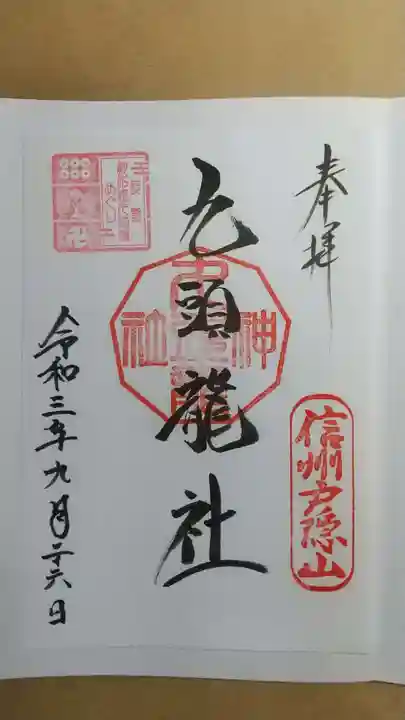 奉拝
信州戸隠山
九頭龍社
神社
令和三年九月二十六日